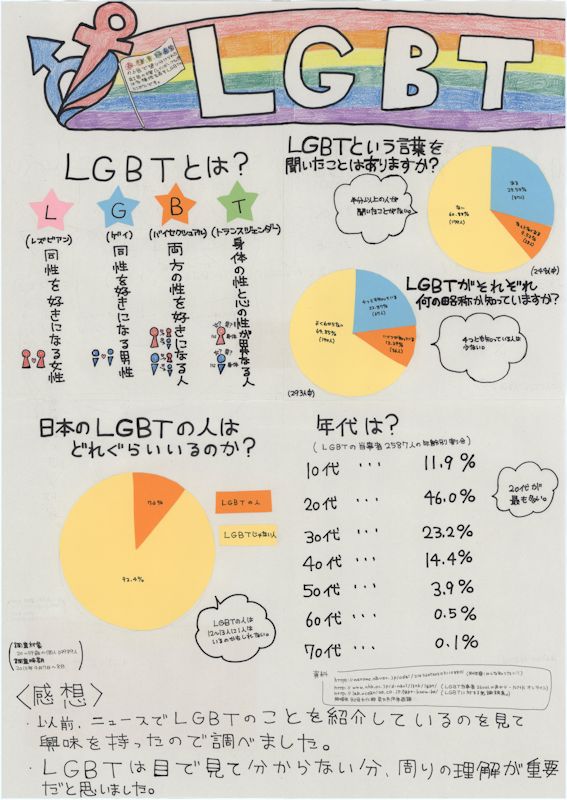 LGBT
LGBTとは?
L
(レズビアン)
同性を好きになる女性
G
(ゲイ)
同性を好きになる男性
B
(バイセクシュアル)
両方の性を好きになる人
T
(トランスジェンダー)
身体の性と心の性が異なる人
LGBTという言葉を
聞いたことはありますか?
半分以上の人が
聞いたことがない。
ない
ある
LGBTがそれぞれ
何の略称か知っていますか?
4つとも知っている人は
少ない。
4つとも知っている
(293人中)
日本のLGBTの人は
どれぐらいいるのか?
7.6%
92.4%
LGBTの人
LGBTじゃない人
LGBTの人は
12~13人に1人は
いるのかもしれない。
調査対象
調査時期
年代は?
(LGBTの当事者2587人の年齢別割合)
10代 ・・・ 11.9%
20代 ・・・ 46.0%
30代 ・・・ 23.2%
40代 ・・・ 14.4%
50代 ・・・ 3.9%
60代 ・・・ 0.5%
70代 0.1%
20代が
最も多い。
資料
〈感想〉
・以前、ニュースでLGBTのことを紹介しているのを見て
興味を持ったので調べました。
・LGBTは目で見て分からない分、周りの理解が重要
だと思いました。